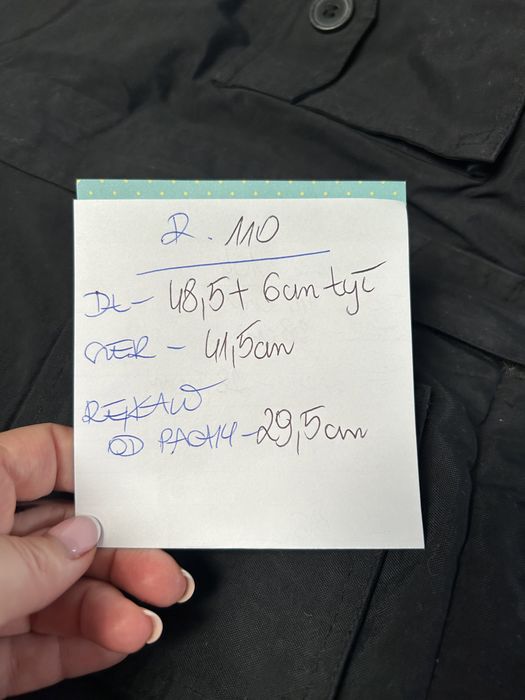 R. 110
DŁ - 48,5 + 6cm tył
SZER - 41,5cm
RĘKAW
OD PACHY - 29,5cm